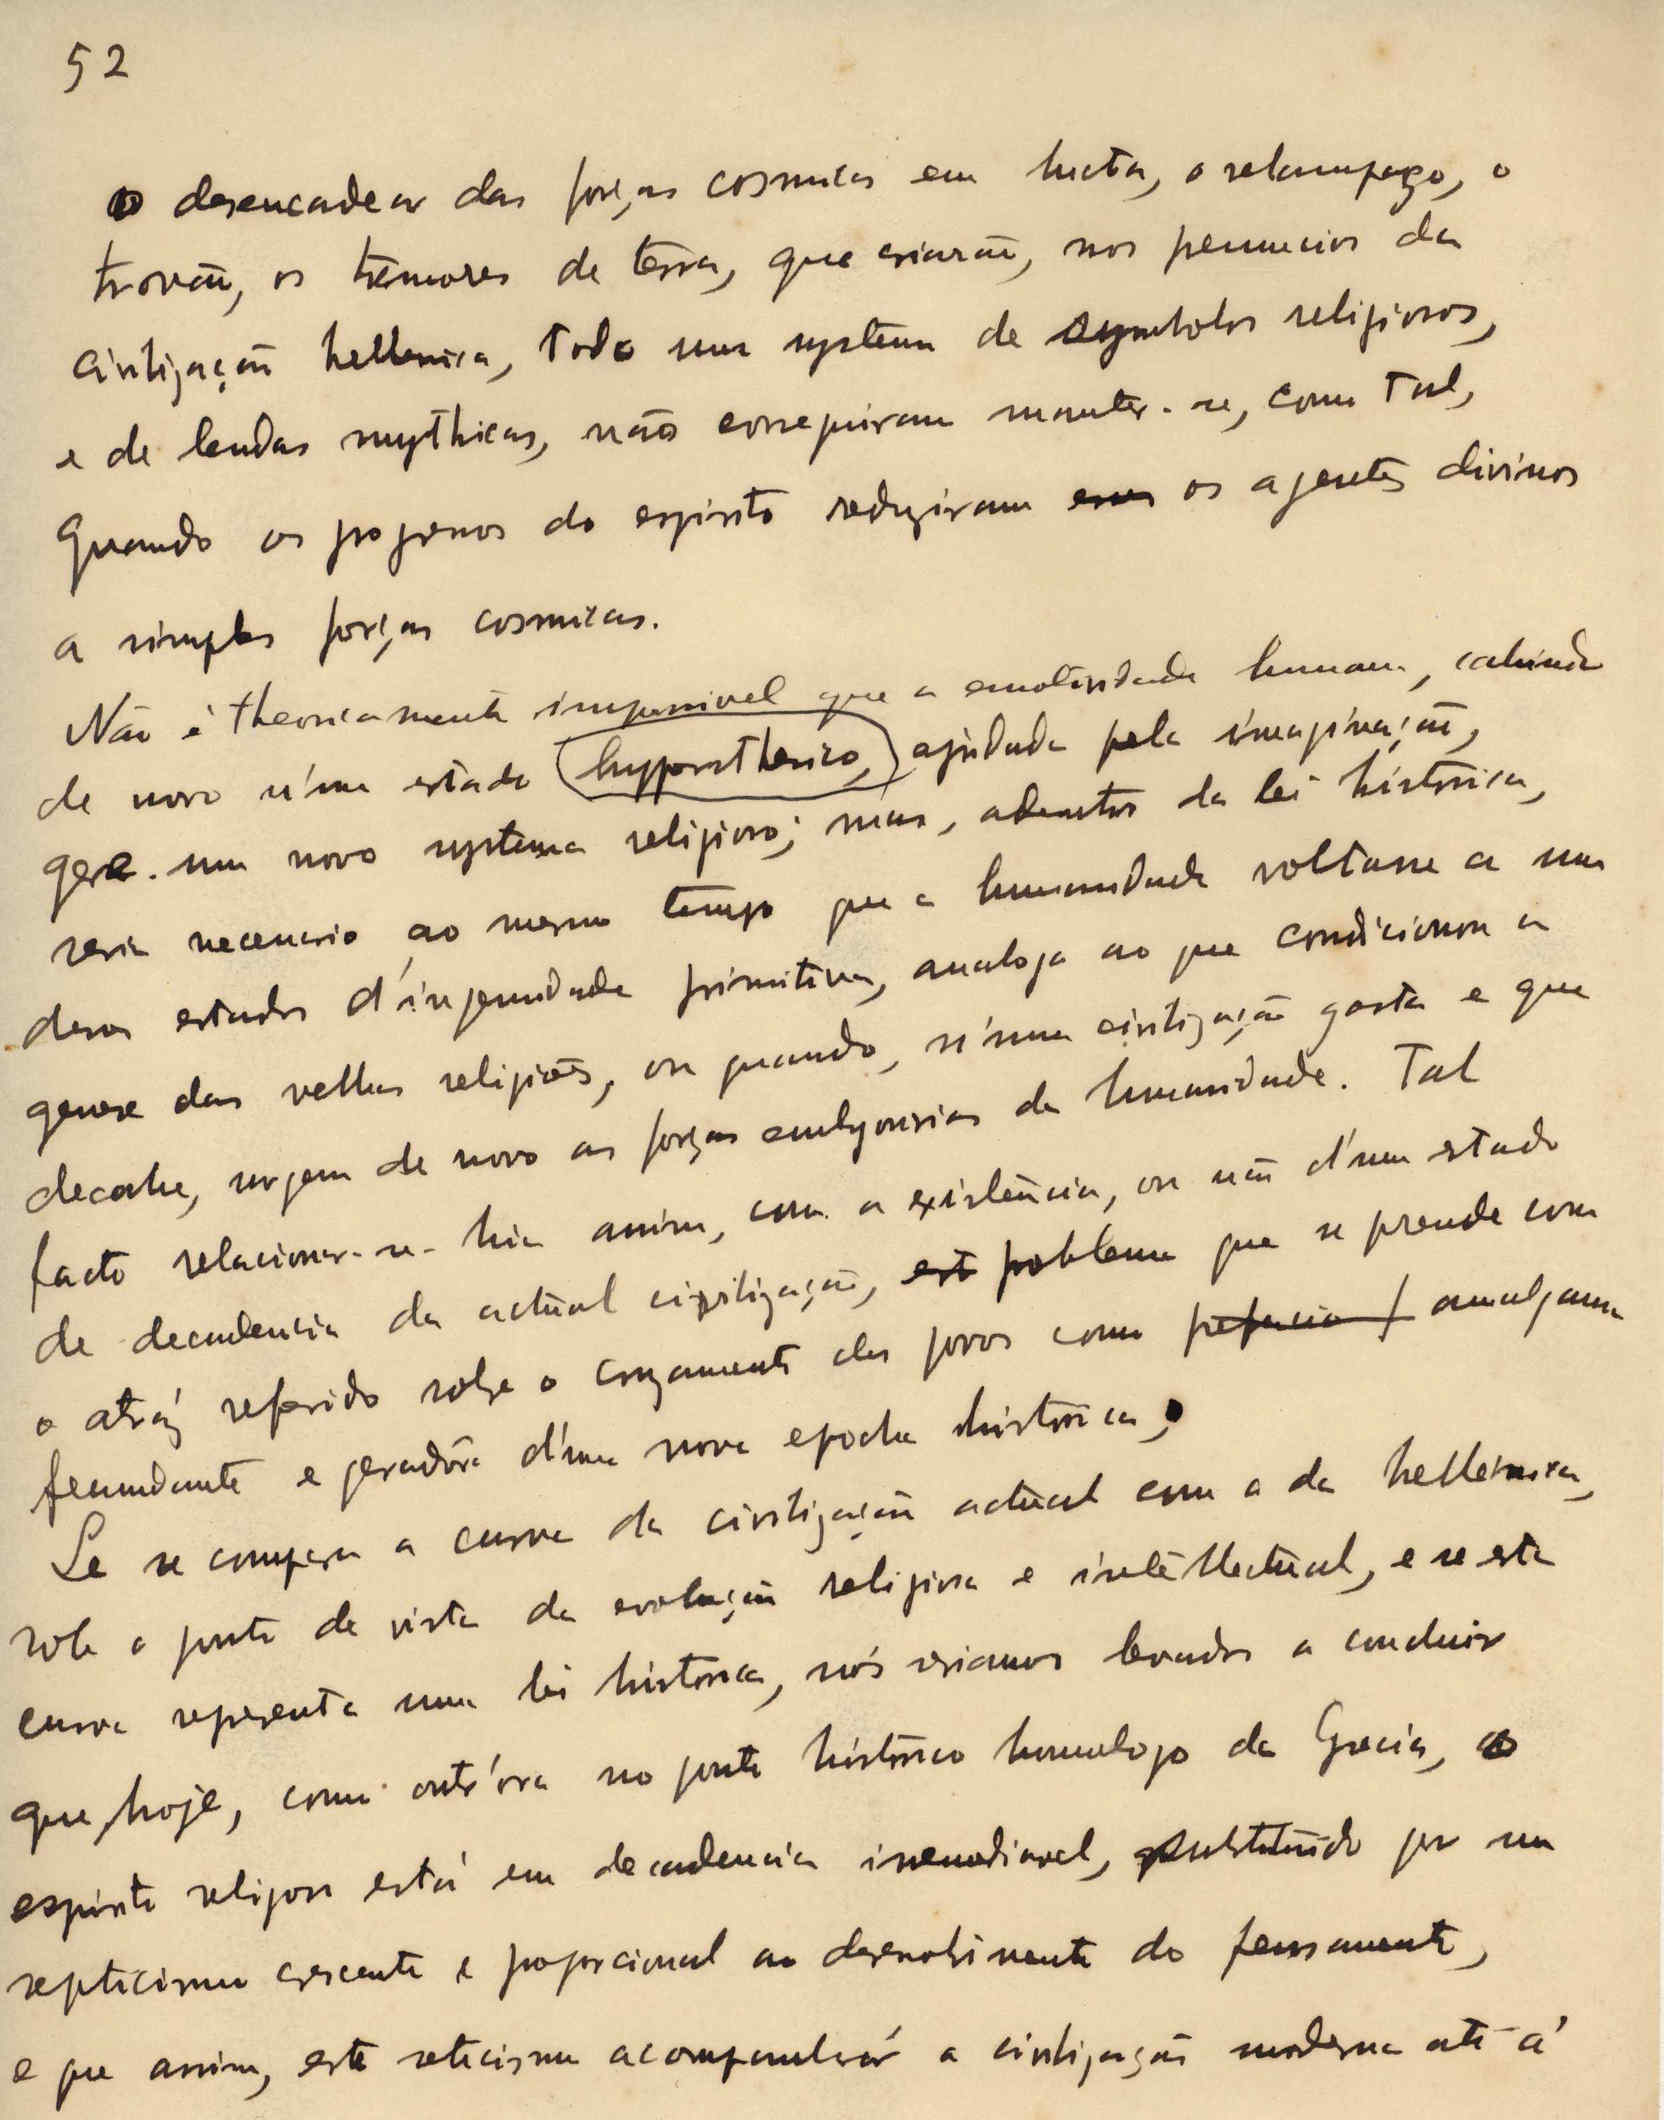 52
o desencadear das forças cosmicas em lucta, o relampago, o
trovão, os tremores de terra, que criarão, nos prenuncios da
civilização hellenica, todo um systema de symbolos religiosos,
e de lendas mythicas, não conseguiram manter-se, como tal,
quando os progressos do espirito reduziram esses os agentes divinos
a simples forças cosmicas.
Não é theoricamente impossivel que a emotividade humana, cahindo
de novo n'um estado hyposthenico, ajudada pela imaginação,
gere um novo systema religioso; mas, adentro da lei histórica,
seria necessario ao mesmo tempo que a humanidade voltasse a um
desses estados d'ingenuidade primitiva, analogo ao que condicionou a
genese das velhas religiões, ou quando, n'uma civilização gasta e que
decahe, surgem de novo as forças embryonarias da humanidade. Tal
facto relacionar-se-hia assim, com a existência, ou não d'um estado
de decadencia da actual civilização, est problema que se prende com
o atráz referido sobre o cruzamento dos povos como prefacio / amalgama
fecundante e geradôra d'uma nova epocha histórica.
Se se compara a curva da civilização actual com a da hellenica,
sob o ponto de vista da evolução religiosa e intellectual, e se esta
curva representa uma lei histórica, nós seriamos levados a concluir
que, hoje, como outr'ora no ponto histórico homologo da Grecia, o
espirito religioso está em decadencia irremediavel, substituido por um
septicismo crescente e proporcional ao desenvolvimento do pensamento,
e que assim, este seticismo acompanhará a civilização moderna até á